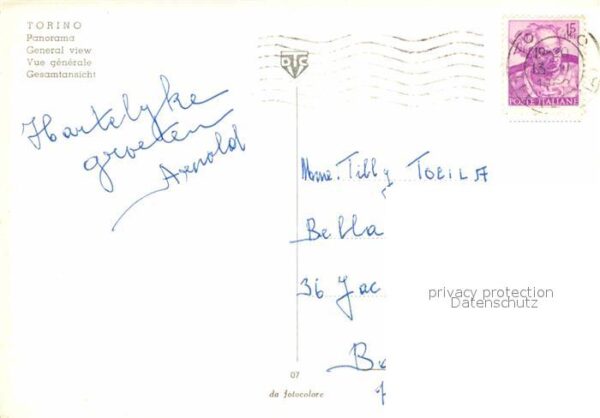 TORINO
Panorama
General view
Vue générale
Gesamtansicht
Hartelyke
groeten
Arnold
15
POSTE ITALIANE
Mme. Tilly
Bella
36 Jac
privacy protection
Datenschutz
07
da fotocolore